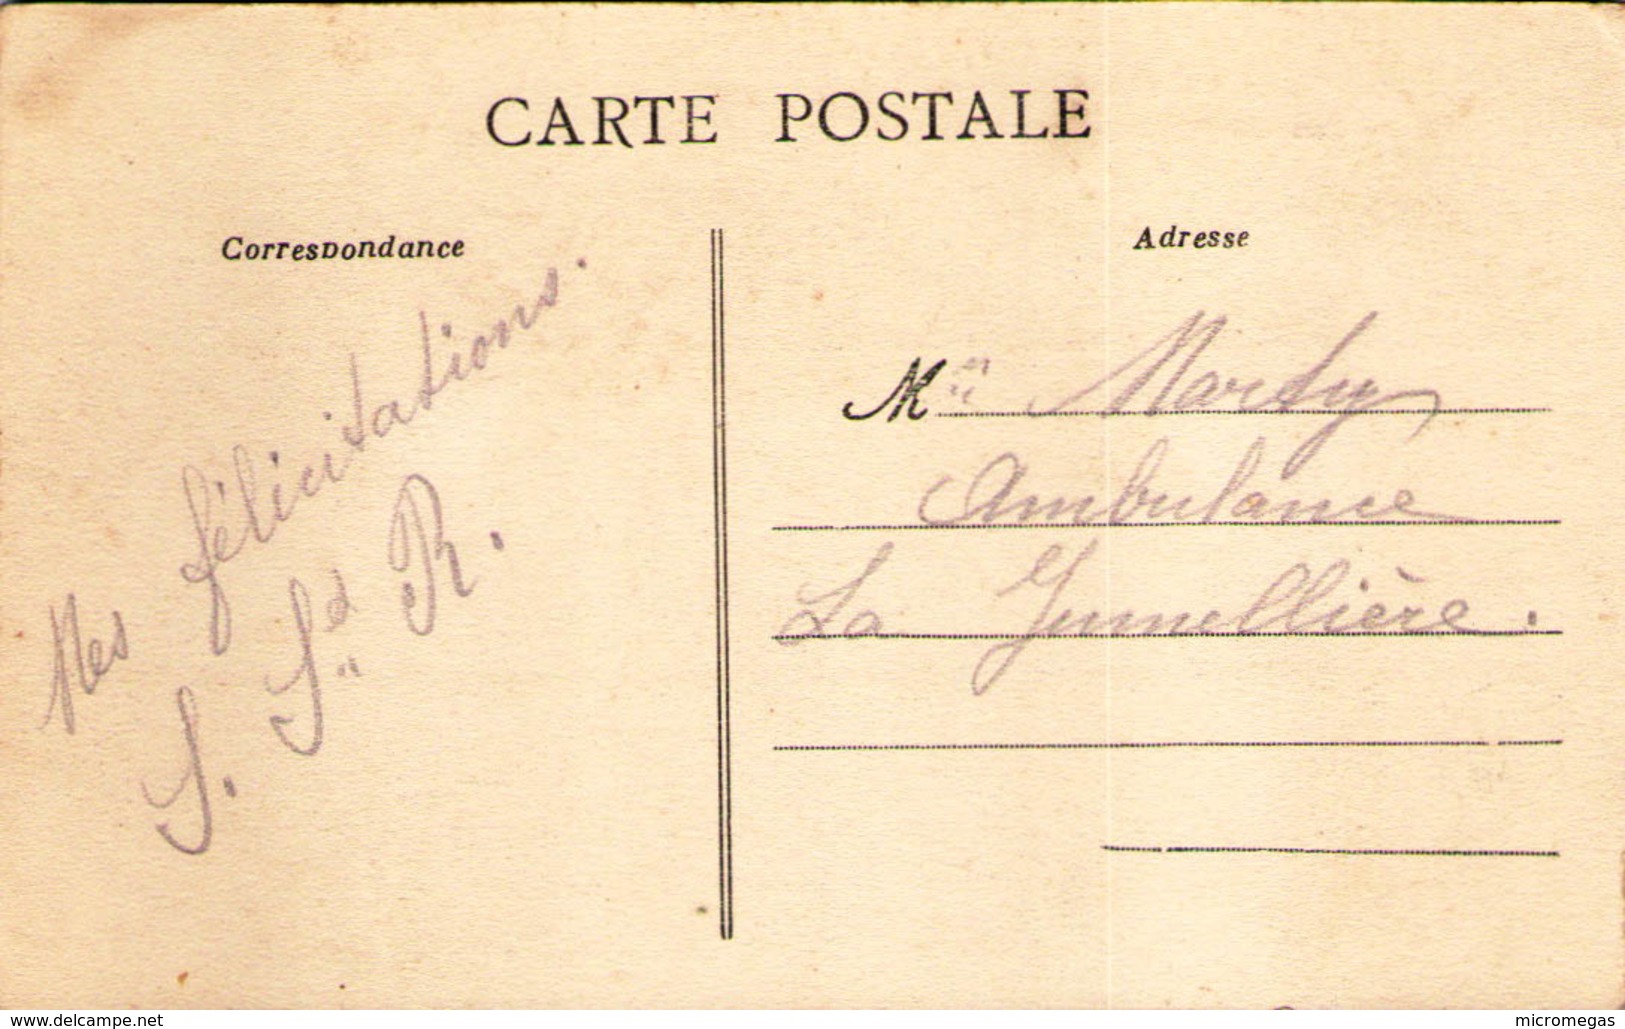 CARTE POSTALE
Correspondance
Mes félicitations.
S. Sd R.
Adresse
M Marty
Ambulance
La Jumellière.
www.delcampe.net
micromegas